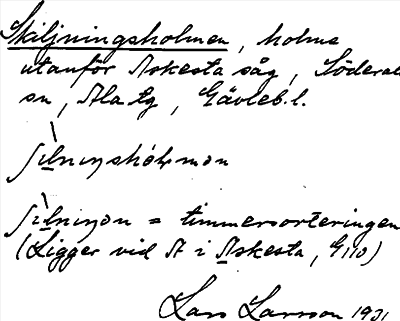 Skiljningsholmen, holme
utanför Askesta såg, Söderala
sn, Ala tg, Gävleb.l.
ʃɪlnɪŋshólmɵn
ʃɪlnɪŋɵn = timmersorteringen
(Ligger vid A i Askesta, G110)
Lars Larsson 1931